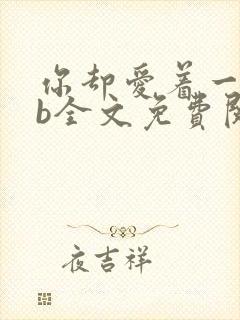 你却爱着一
b全文免費閱
夜吉祥